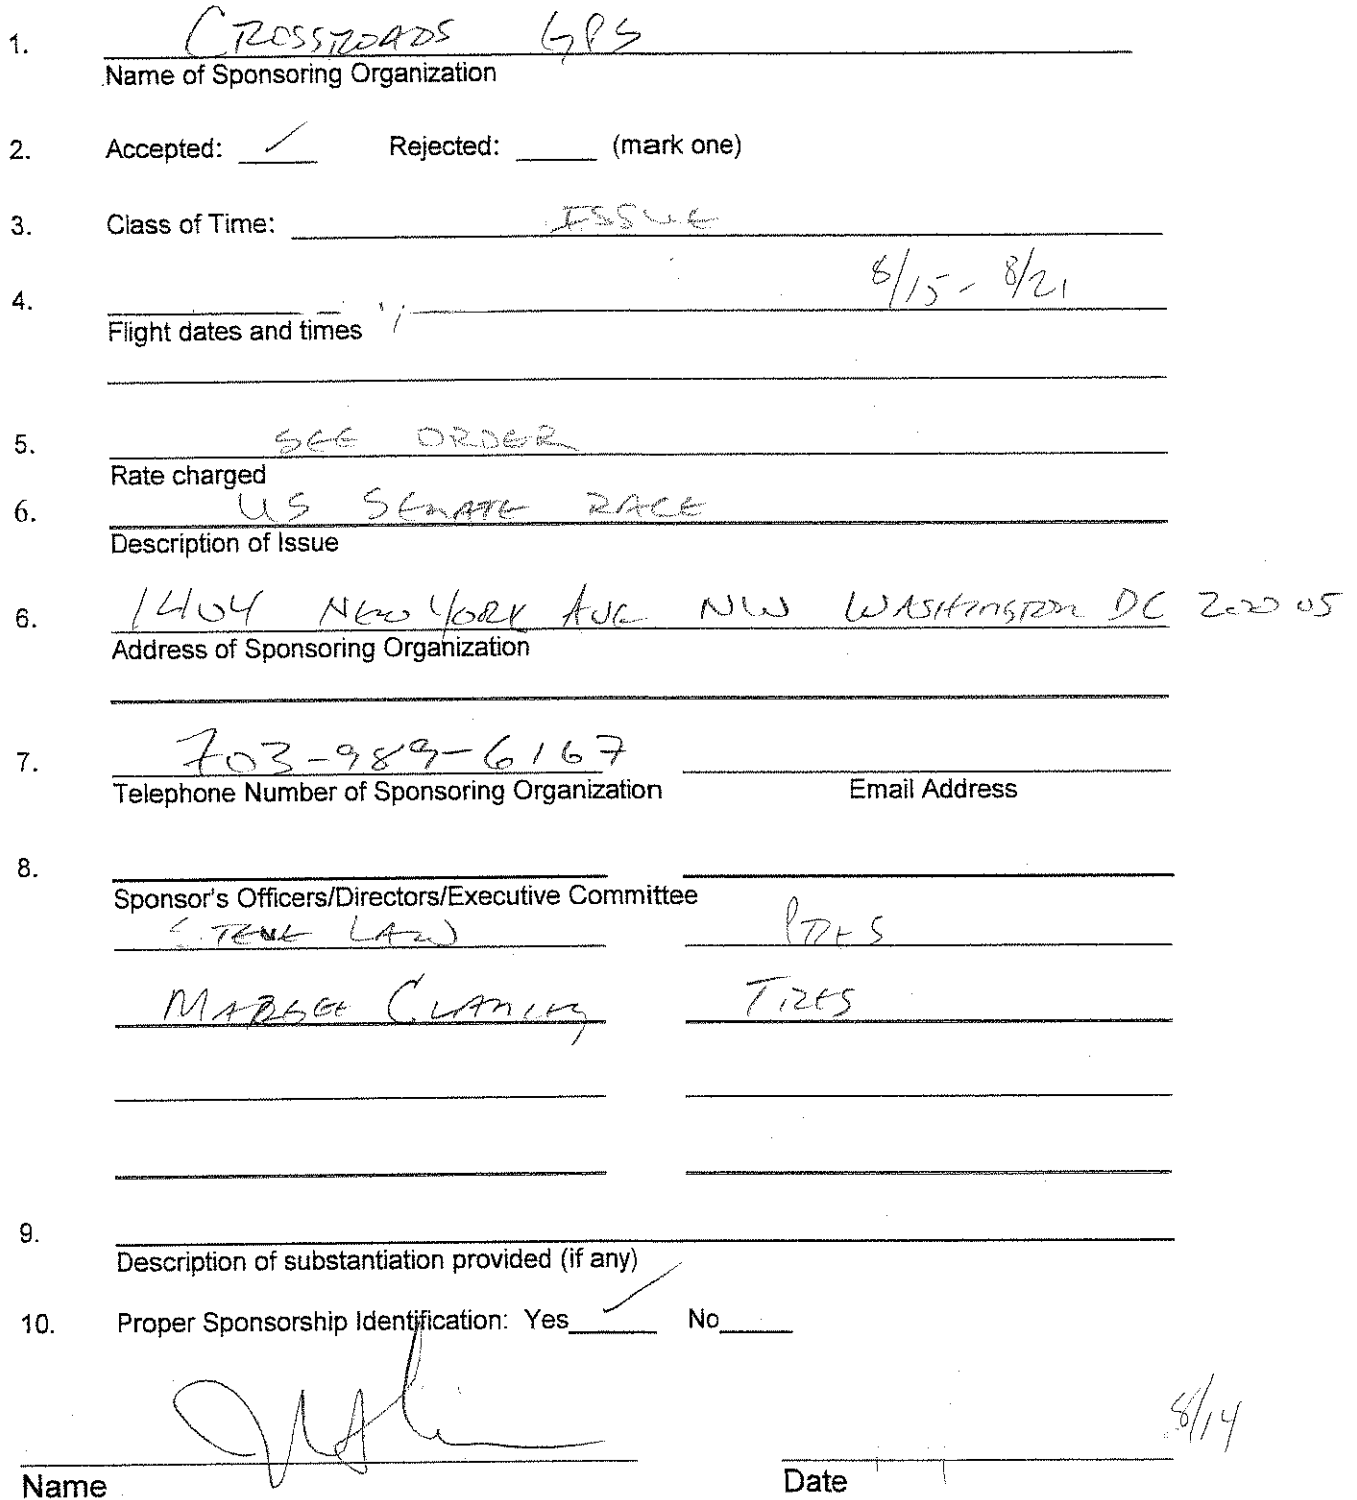 1. CROSSROADS GPS
Name of Sponsoring Organization
2. Accepted: ✓ Rejected: ____ (mark one)
3. Class of Time: ISSUE
4. 8/15 - 8/21
Flight dates and times
5. SEE ORDER
Rate charged
6. US SENATE RACE
Description of Issue
6. 1404 NEW YORK AVE NW WASHINGTON DC 20005
Address of Sponsoring Organization
7. 703-989-6167
Telephone Number of Sponsoring Organization Email Address
8.
Sponsor's Officers/Directors/Executive Committee
STEVE LAW PRES
MARGEE CLANCEY TRES
9.
Description of substantiation provided (if any)
10. Proper Sponsorship Identification: Yes ✓ No____
8/14
Name Date